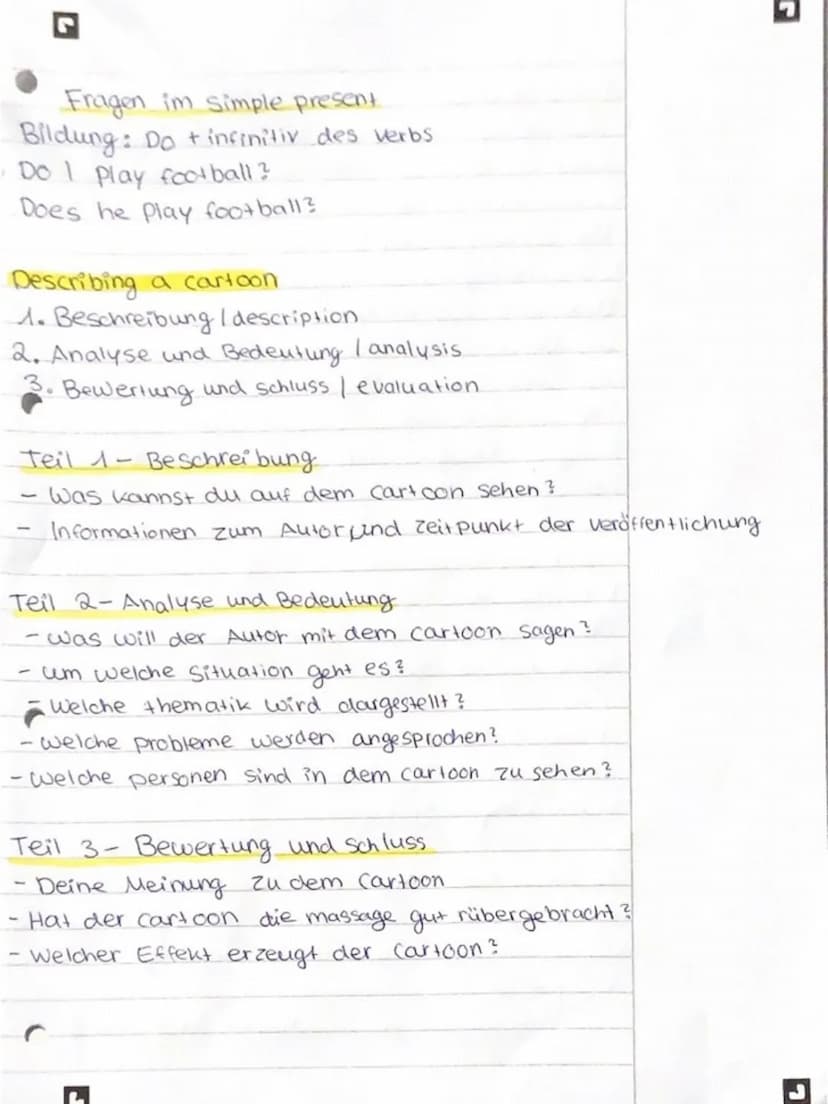 Fragen im simple present
Bildung: Do + infinitiv des verbs
Do I play football?
Does he play football?
Describing a cartoon
1. Beschreibung / description
2. Analyse und Bedeutung / analysis
3. Bewertung und schluss / evaluation
Teil 1 - Beschreibung
- Was kannst du auf dem Cartoon sehen?
- Informationen zum Autor und Zeitpunkt der veröffentlichung
Teil 2 - Analyse und Bedeutung
- was will der Autor mit dem cartoon sagen?
- um welche Situation geht es?
- Welche thematik wird dargestellt?
- welche probleme werden angesprochen?
- welche personen sind in dem cartoon zu sehen?
Teil 3 - Bewertung und schluss
- Deine Meinung zu dem Cartoon
- Hat der cartoon die massage gut rübergebracht?
- Welcher Effekt erzeugt der Cartoon?